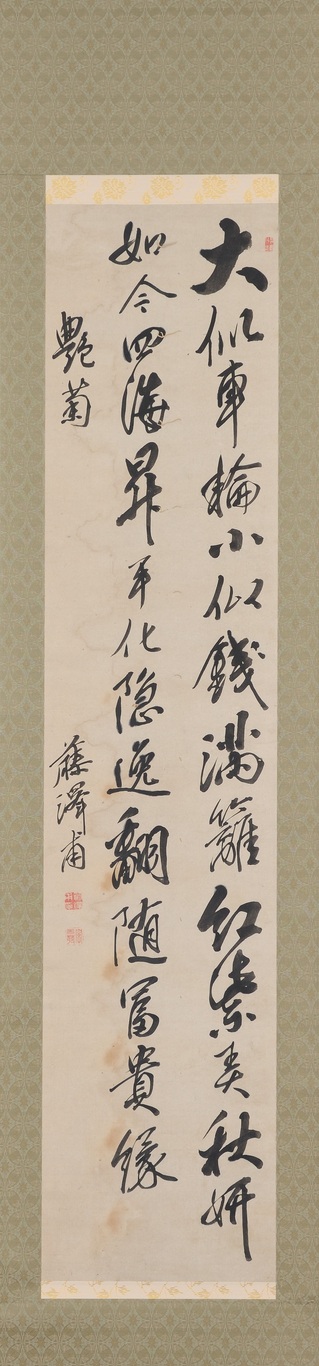 大似車輪小似錢滿籬紅紫美秋妍
如今四海昇平化隐逸翻随富貴縁
艶菊
藤澤甫